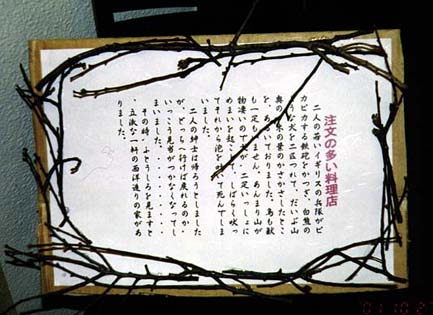 注文の多い料理店
二人の若いイギリスの兵隊がピ
カピカする鉄砲をかついで、白熊の
ような犬を二匹つれて、だいぶ山
奥の、木の葉のかさかさしたとこ
を、あるいておりました。鳥も獣
も一定もいません。あんまり山が
物凄いので犬が、二疋いっしょに
めまいを起こして、しばらく吠っ
てそれから泡を吐いて死んでしま
いました。
二人の紳士は帰ろうとしました
が、どっちへ行けば戻れるのか
がっとう見当がつかなくなってし
まいました・・・・・・・
その時、ふとうしろを見ますと
、立派な一軒の西洋造りの家があ
りました。
01 10 2